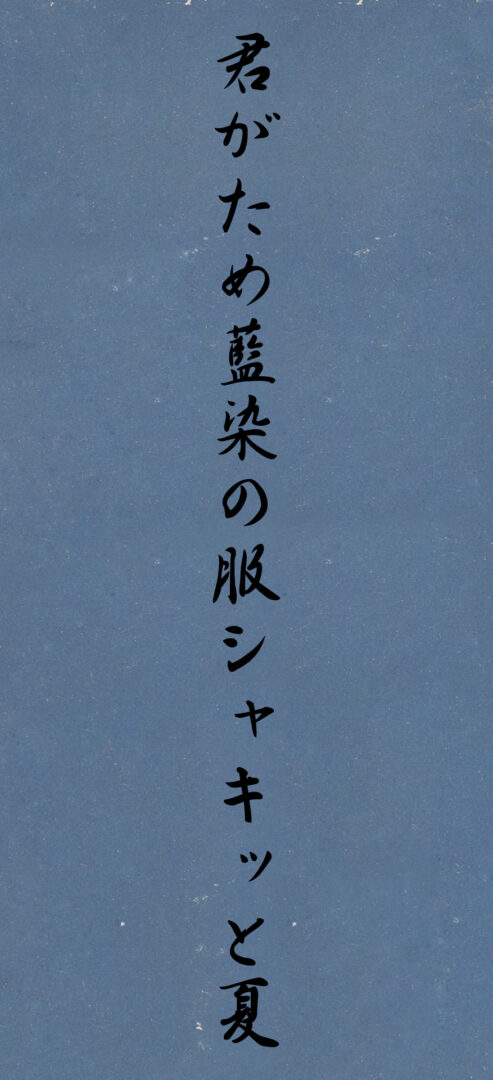 君がため藍染の服シャキッと夏